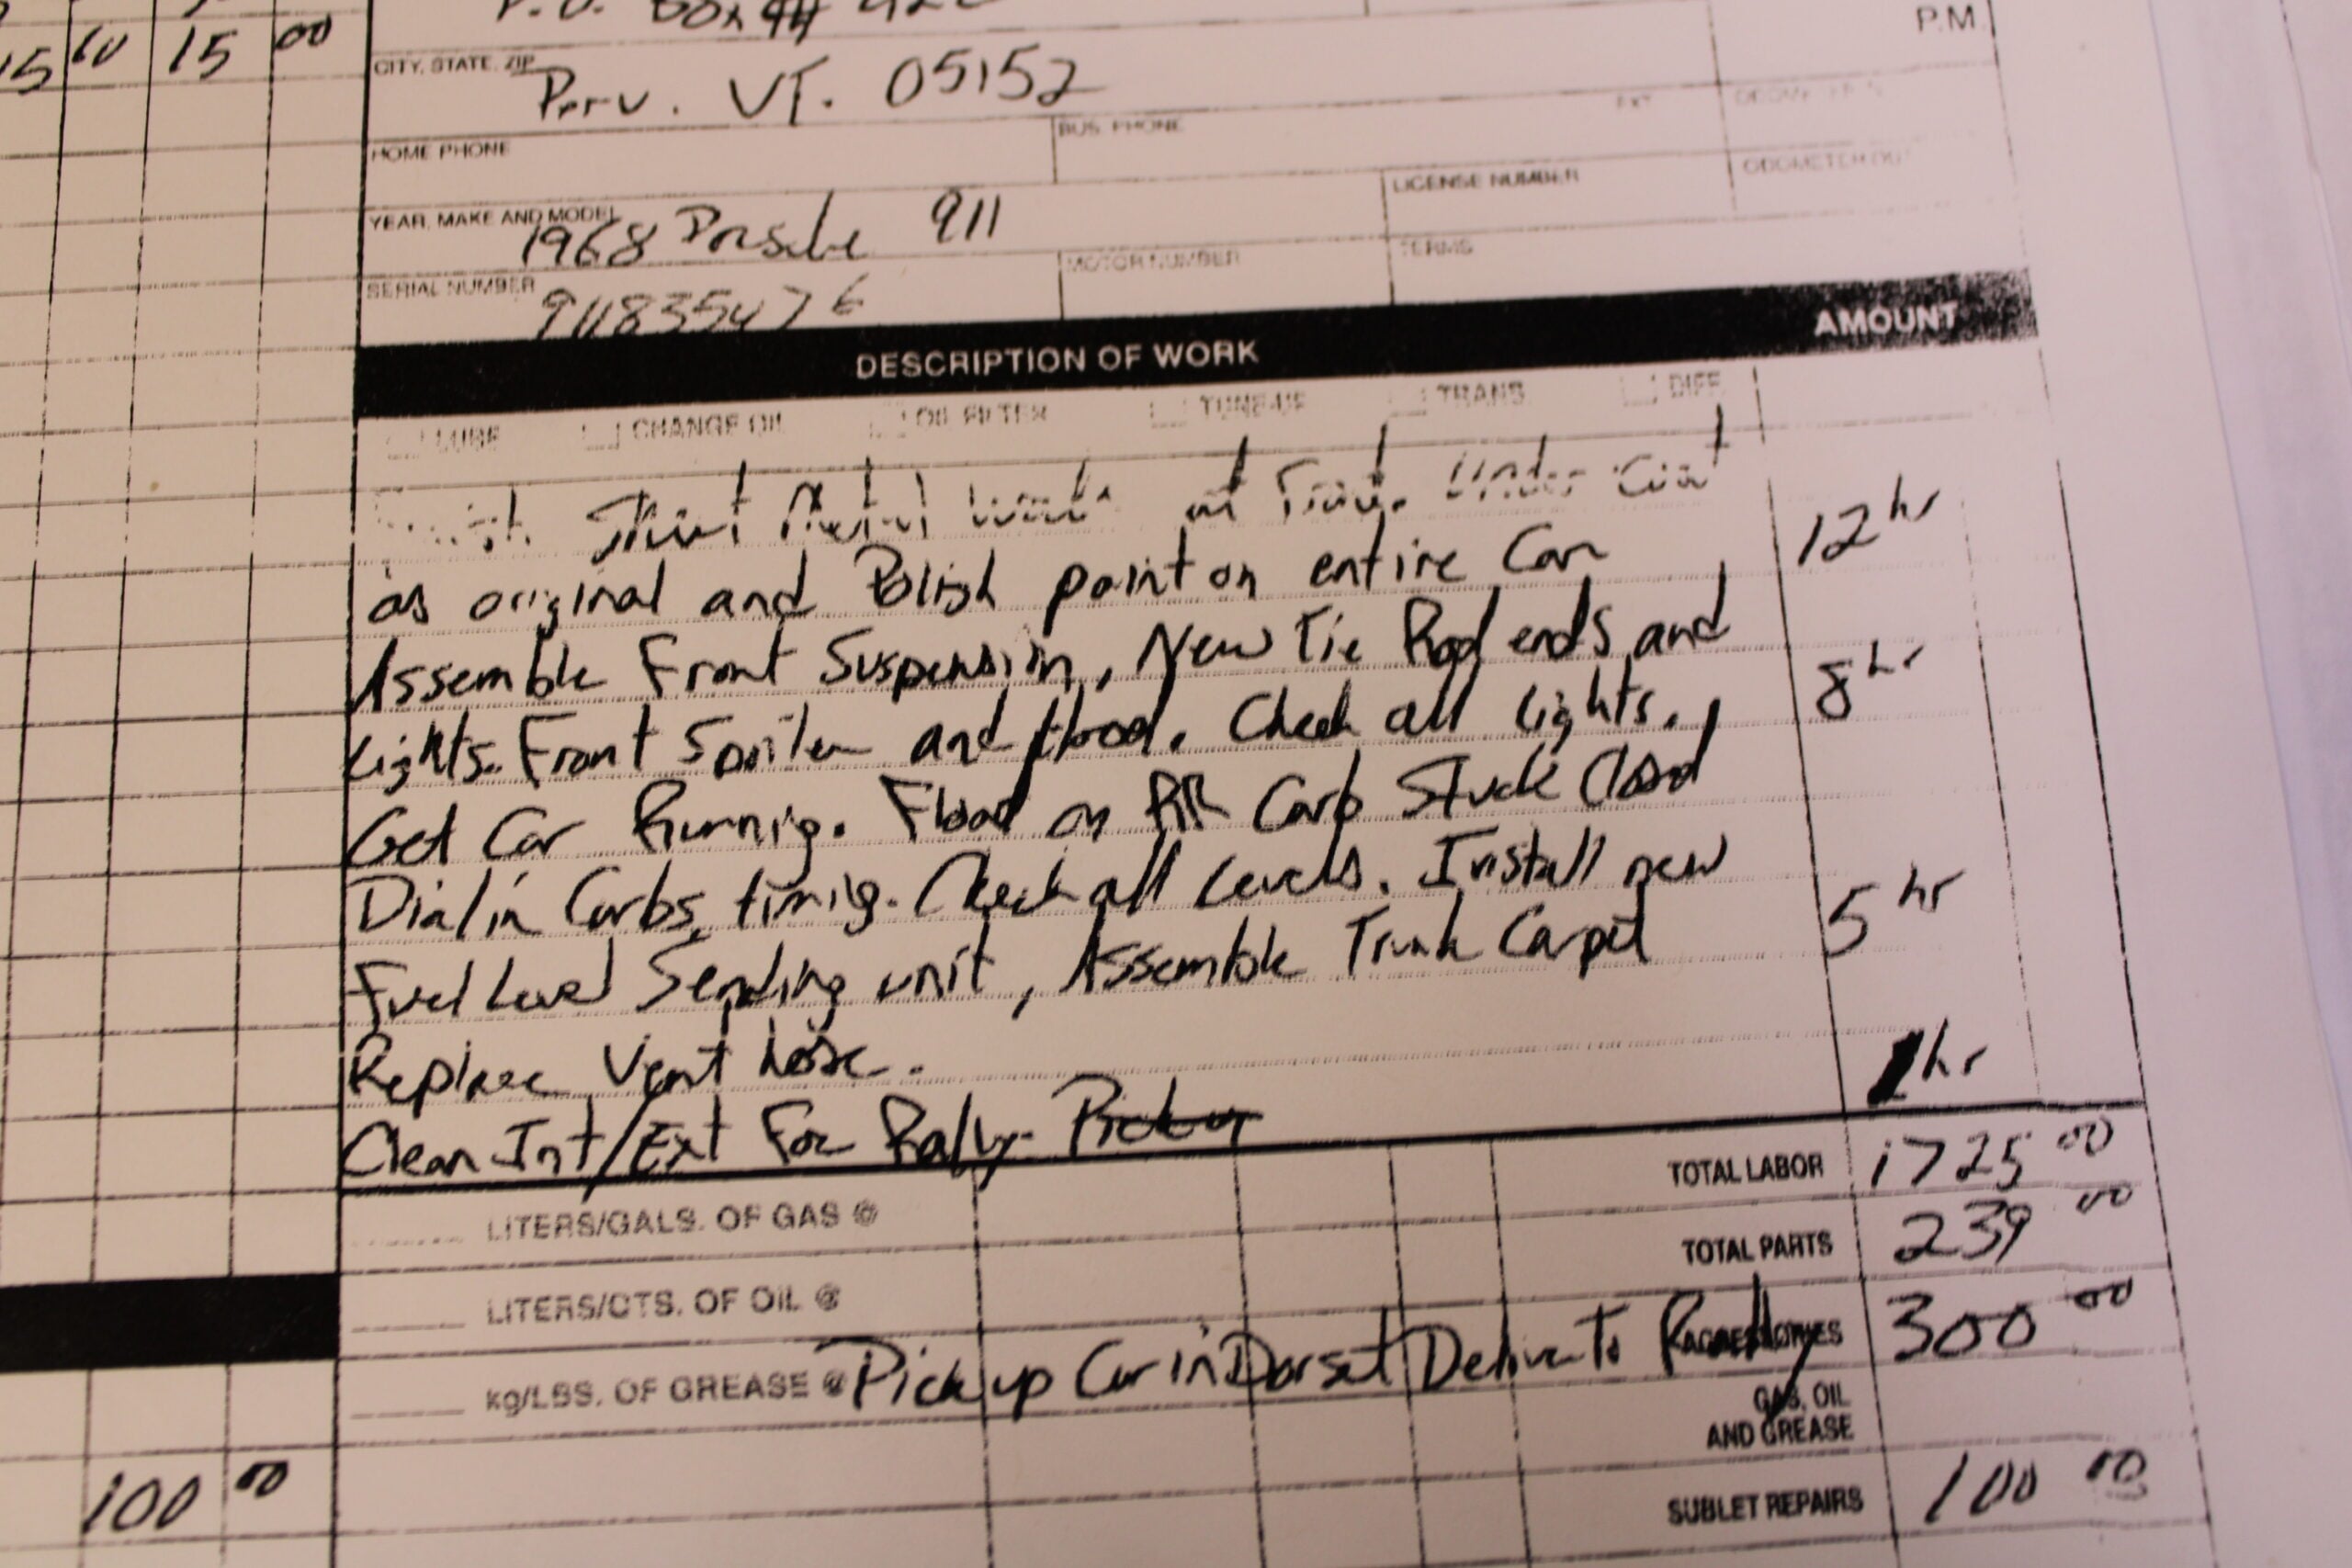 15 00
P.O. Box 
P.M.
CITY, STATE, ZIP
Peru. VT. 05152
HOME PHONE
BUS. PHONE
EXT
YEAR, MAKE AND MODEL
1968 Porsche 911
LICENSE NUMBER
ODOMETER OUT
SERIAL NUMBER
MOTOR NUMBER
TERMS
DESCRIPTION OF WORK
AMOUNT
LUBE CHANGE OIL OIL FILTER TUNE-UP TRANS. DIFF.
Sheet Metal Work at Front. Under Coat
as original and Polish paint on entire Car 12 hr
Assemble Front Suspension, New Tie Rod ends and
Lights. Front Spoiler and Hood. Check all Lights. 8 hr
Get Car Runnig. Float on RR Carb Stuck Closed
Dial in Carbs, timig. Check all Levels. Install new
Fuel Level Sending unit, Assemble Trunk Carpet 5 hr
Replace Vent hose.
Clean Int/Ext For Rally. Pickup 1 hr
TOTAL LABOR 1725 00
LITERS/GALS. OF GAS @
TOTAL PARTS 239 00
LITERS/QTS. OF OIL @
ACCESSORIES 300 00
kg/LBS. OF GREASE @ Pick up Car in Dorset Deliver To Rally
GAS, OIL
AND GREASE
100 00
SUBLET REPAIRS 100 00